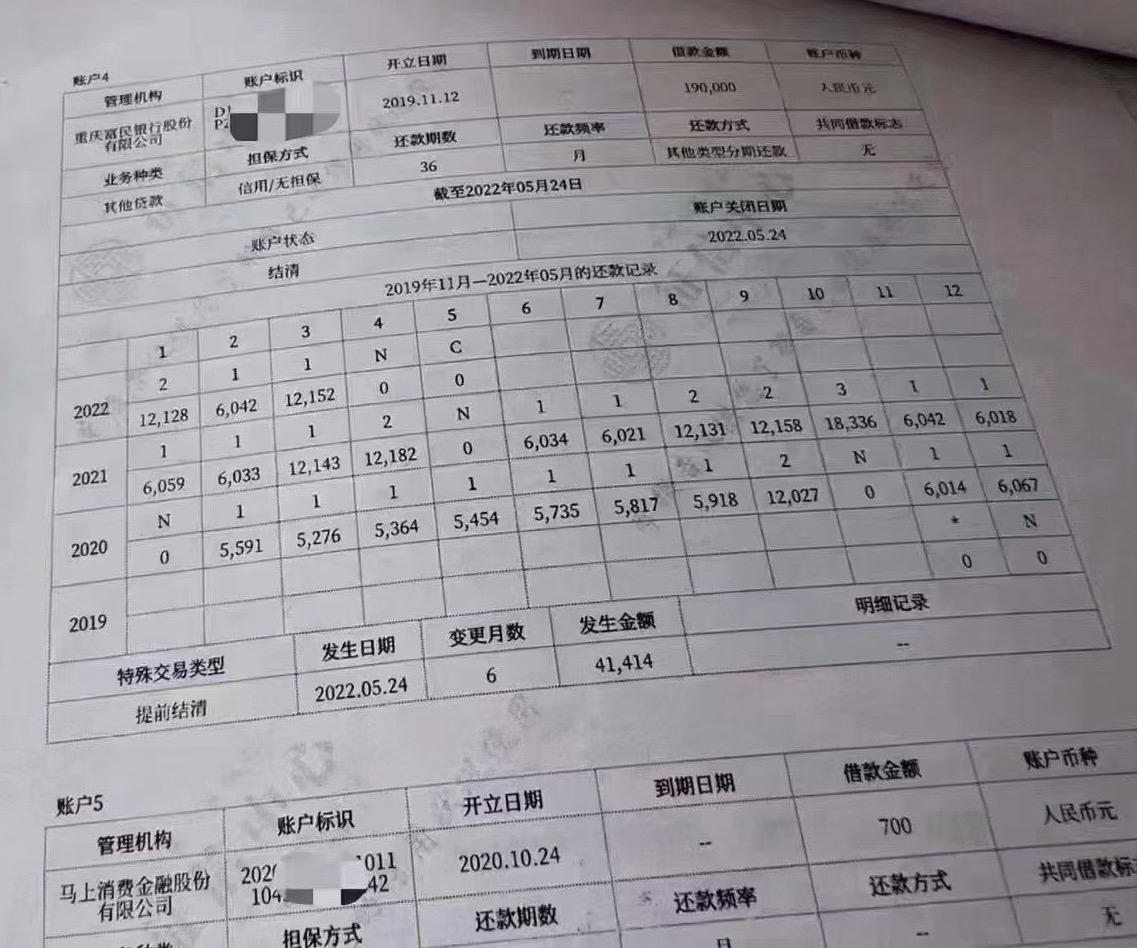 账户4
管理机构 账户标识 开立日期 到期日期 借款金额 账户币种
重庆富民银行股份有限公司 2019.11.12 190,000 人民币元
业务种类 担保方式 还款期数 还款频率 还款方式 共同借款标志
其他贷款 信用/无担保 36 月 其他类型分期还款 无
截至2022年05月24日
账户状态 账户关闭日期
结清 2022.05.24
2019年11月—2022年05月的还款记录
1 2 3 4 5 6 7 8 9 10 11 12
2022 2 1 1 N C
12,128 6,042 12,152 0 0
2021 1 1 1 2 N 1 1 2 2 3 1 1
6,059 6,033 12,143 12,182 0 6,034 6,021 12,131 12,158 18,336 6,042 6,018
2020 N 1 1 1 1 1 1 1 2 N 1 1
0 5,591 5,276 5,364 5,454 5,735 5,817 5,918 12,027 0 6,014 6,067
2019 * N
0 0
特殊交易类型 发生日期 变更月数 发生金额 明细记录
提前结清 2022.05.24 6 41,414 --
账户5
管理机构 账户标识 开立日期 到期日期 借款金额 账户币种
马上消费金融股份有限公司 2020.10.24 -- 700 人民币元
担保方式 还款期数 还款频率 还款方式 共同借款标
月 -- 无